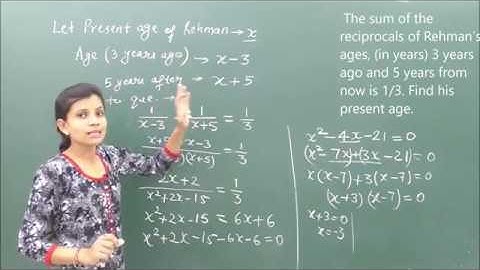 Let Present age of Rehman → x
Age (3 years ago) → x-3
5 years after → x+5
to que →
1/x-3 1/x+5 = 1/3
x+5 x-3 )(x+5) = 1/3
2x+2/x²+2x-15 = 1/3
x²+2x-15 = 6x+6
x²+2x-15-6x-6=0
The sum of the
reciprocals of Rehman's
ages, (in years) 3 years
ago and 5 years from
now is 1/3. Find his
present age.
x²-4x-21=0
(x²-7x)+(3x-21)=0
x(x-7)+3(x-7)=0
(x+3)(x-7)=0
x+3=0
x=-3